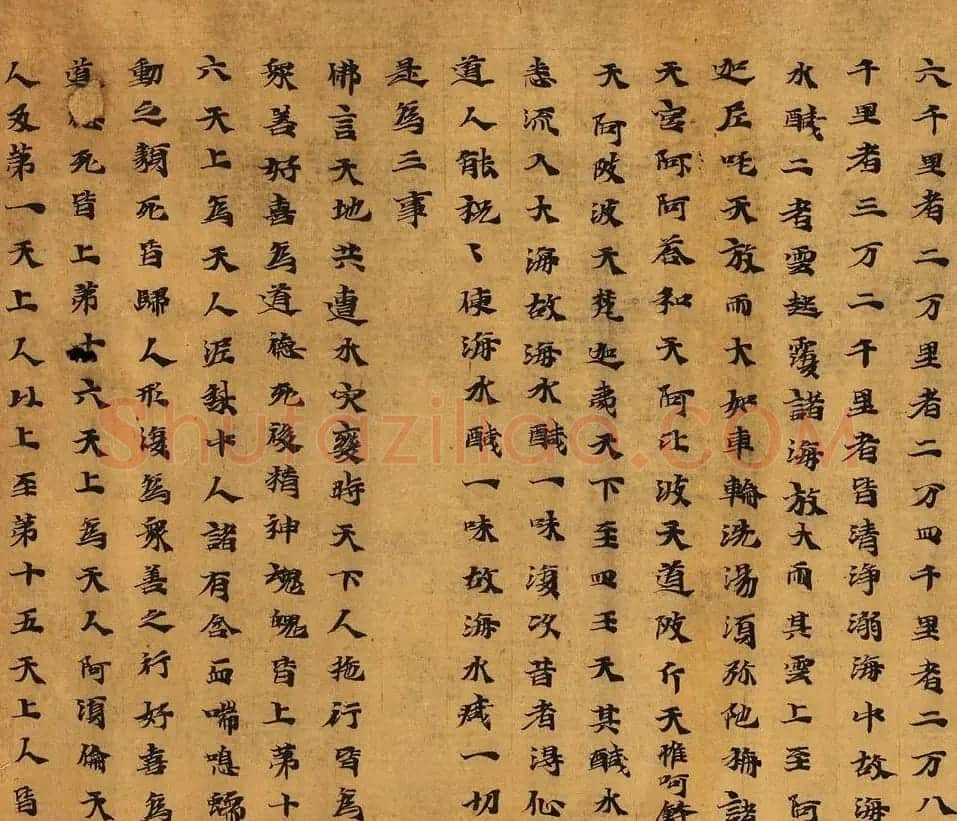 六千里者二万里者二万四千里者二万八
千里者三万二千里者皆清浄溺海中故海
水醎二者雲起覆諸海放大雨其雲上至阿
迦尼吒天放雨大如車輪洗湯須弥阤諸
天宮阿阿荅和天阿比波天道陂斤天惟呵
天阿陂波天梵迦夷天下至四王天其醎水
悉流入大海故海水醎一味復次昔者得仙
道人能祝〻使海水醎一味故海水醎一切
是為三事
佛言天地共遭水灾變時天下人拖行皆為
衆善好喜為道徳死後精神魂魄皆上第十
六天上為天人泥黎中人諸有含血喘息蠕
動之類死皆歸人形復為衆善之行好喜為
道死皆上第十六天上為天人阿須倫天
人及第一天上人以上至第十五天上人皆
Shufaziliao.com